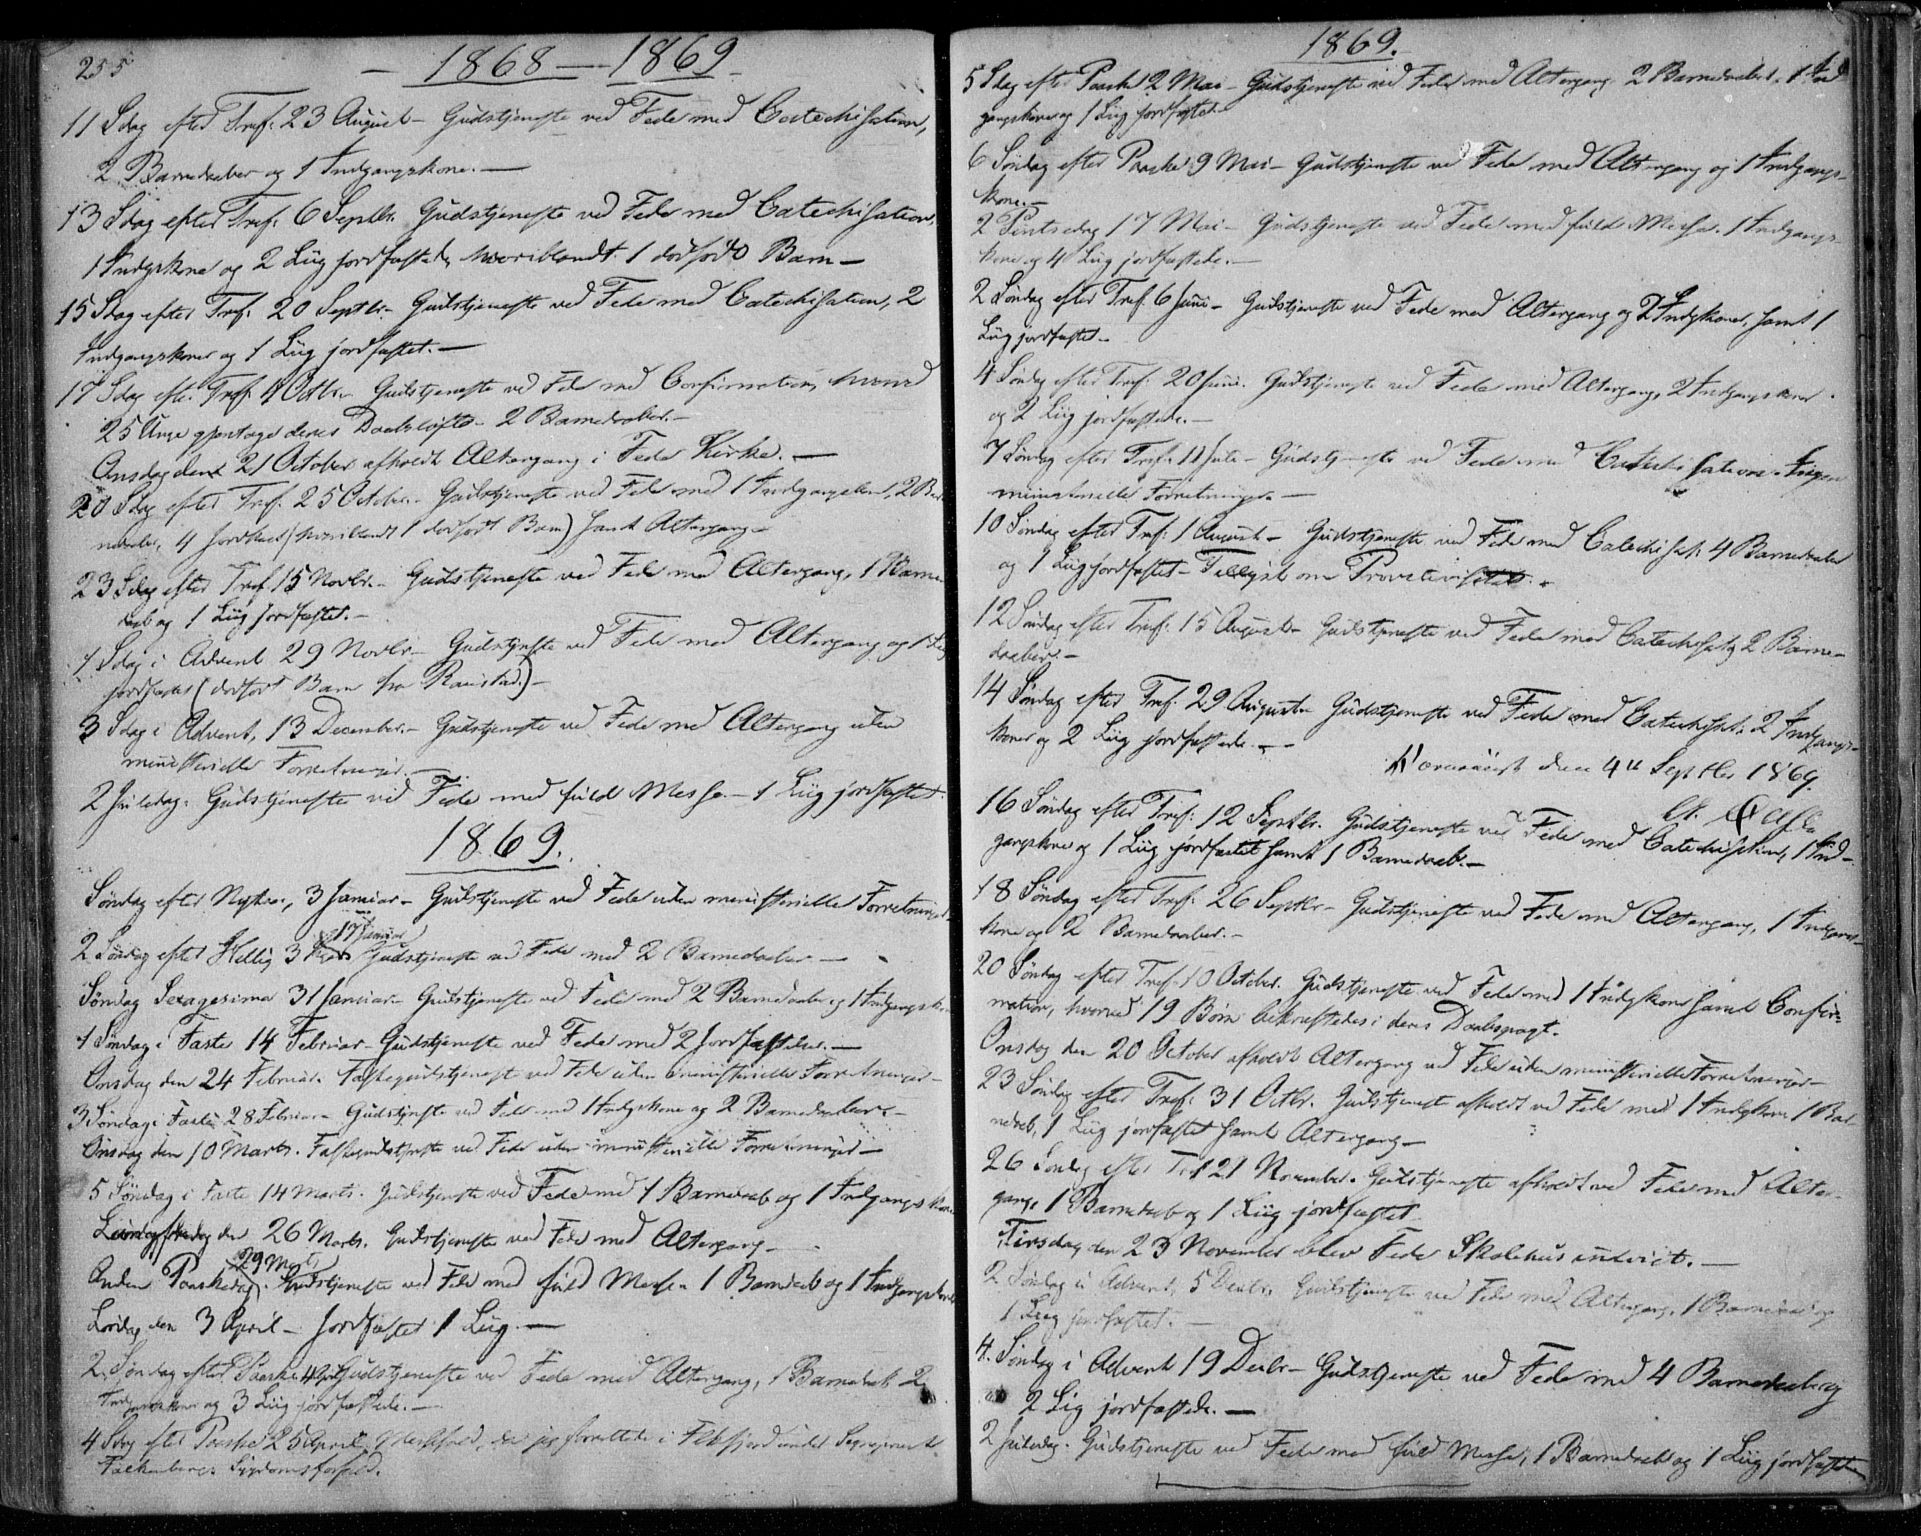 255
1868 — 1869
11 Sdag efter Tref: 23 August – Gudstjeneste ved Fede med Catechisation,
2 Barnedaaber og 1 Indgangskone. —
13 Sdag efter Tref: 6 Septbr. Gudstjeneste ved Fede med Catechisation,
1 Indgskone og 2 Liig jordfæstede, hvoriblandt 1 dødfødt Barn —
15 Sdag efter Tref: 20 Septbr. Gudstjeneste ved Fede med Catechisation, 2
Indgangskoner og 1 Liig jordfæstet. —
17 Sdag efter Tref. 4 Octbr. Gudstjeneste ved Fede med Confirmation, hvorved
25 Unge gjentoge deres Daabsløfte – 2 Barnedaaber. –
Onsdag den 21 October afholdt Altergang i Fede Kirke. —
20 Sdag efter Tref. 25 Octobr. Gudstjeneste ved Fede med 1 Indgangskone, 2 Bar-
nedaaber, 4 (hvoriblandt 1 dødfødt Barn) samt Altergang –
23 Sdag efter Tref. 15 Novbr. – Gudstjeneste ved Fede med Altergang, 1 Barne-
daab og 1 Liig jordfæstet. –
1 Sdag i Advent 29 Novbr – Gudstjeneste ved Fede med Altergang og 1 Liig
jordfæstet (dødfødt Barn fra) –
3 Sdag i Advent, 13 December. – Gudstjeneste ved Fede med Altergang uden
ministerielle Forretninger. —
2 Juledag. Gudstjeneste ved Fede med fuld Messe. – 1 Liig jordfæstet.
1869.
Søndag efter Nytaar, 3 Januar – Gudstjeneste ved Fede uden ministerielle Forretninger
17 Januar
2 Søndag efter Hellig 3 Gudstjeneste ved Fede med 2 Barnedaaber —
Søndag Sexagesima 31 Januar – Gudstjeneste ved Fede med 2 Barnedaaber og 1 Indgangsko-
1 Søndag i Faste 14 Februar – Gudstjeneste ved Fede med 2 Jordfæstelser. —
Onsdag den 24 Februar. Fastegudstjeneste ved Fede uden ministerielle Forretninger –
3 Søndag i Faste 28 Februar – Gudstjeneste ved Fede med 1 Indgskone og 2 Barnedaaber. –
Onsdag den 10 Marts. Fastegudstjeneste ved Fede uden ministerielle Forretninger –
5 Søndag i Faste 14 Marts. Gudstjeneste ved Fede med 1 Barnedaab og 1 Indgangskone
Langfredag den 26 Marts. Gudstjeneste ved Fede med Altergang —
29 Marts
Anden Paaskedag. Gudstjeneste ved Fede med fuld Messe 1 Barnedaab og 1 Indgangskone
Lørdag den 3 April – Jordfæstet 1 Liig. —
2 Søndag efter Paaske Gudstjeneste ved Fede med Altergang, 1 Barnedaab 2
Indgangskoner og 3 Liig jordfæstede. —
4 Sdag efter Paaske 25 April Messefald, da jeg forrettede i under Sogneprest
Falkenbergs Sygdomsforfald.
1869.
5 Sdag efter Paaske 2 Mai – Gudstjeneste ved Fede med Altergang 2 Barnedaaber, 1 Ind-
gangskone og 1 Liig jordfæstet
6 Søndag efter Paaske 9 Mai – Gudstjeneste ved Fede med Altergang og 1 Indgangs-
kone. –
2 Pintsedag 17 Mai – Gudstjeneste ved Fede med fuld Messe. 1 Indgangs-
kone og 4 Liig jordfæstede. —
2 Søndag efter Tref. 6 Juni – Gudstjeneste ved Fede med Altergang og 2 Indgskoner, samt 1
Liig jordfæstet –
4 Søndag efter Tref: 20 Juni. Gudstjeneste ved Fede med Altergang, 2 Indgangskoner
og 2 Liig jordfæstede. —
7 Søndag efter Tref: 11 Juli – Gudstjeneste ved Fede med Catechisation. Ingen
ministerielle Forretninger —
10 Søndag efter Tref: 1 August – Gudstjeneste ved Fede med Catechisat: 4 Barnedaaber
og 1 Liig jordfæstet – Tillyst om Provstevisitats. –
12 Søndag efter Tref. 15 August – Gudstjeneste ved Fede med Catechisat, 2 Barne-
daaber. –
14 Søndag efter Tref. 29 August – Gudstjeneste ved Fede med Catechisat: 2 Indgangs-
koner og 2 Liig jordfæstede. –
den 4de Septbr 1869.
16 Søndag efter Tref: 12 Septbr. Gudstjeneste ved Fede med Catechisation, 1 Ind-
gangskone og 1 Liig jordfæstet samt 1 Barnedaab. –
18 Søndag efter Tref: 26 Septbr – Gudstjeneste ved Fede med Altergang, 1 Indgangs-
kone og 2 Barnedaaber. –
20 Søndag efter Tref. 10 October. Gudstjeneste ved Fede med 1 Indgskone samt Confir-
mation, hvorved 19 Børn bekræftedes i deres Daabspagt.
Onsdag den 20 October afholdt Altergang ved Fede uden ministerielle Forretninger –
23 Søndag efter Tref: 31 Octbr. Gudstjeneste afholdt ved Fede med 1 Indgskone, 1 Bar-
nedaab, 1 Liig jordfæstet samt Altergang –
26 Søndag efter Tref 21 November. Gudstjeneste afholdt ved Fede med Alter-
gang, 1 Barnedaab og 1 Liig jordfæstet
Tirsdag den 23 November blev Fede Skolehus indviet. —
2 Søndag i Advent, 5 Decbr. Gudstjeneste ved Fede med Altergang, 1 Barnedaab og
1 Liig jordfæstet. —
4. Søndag i Advent 19 Decbr – Gudstjeneste ved Fede med 4 Barnedaaber og
2 Lig jordfæstede. —
2 Juledag. Gudstjeneste ved Fede med fuld Messe, 1 Barnedaab og 1 Liig jordfæstet